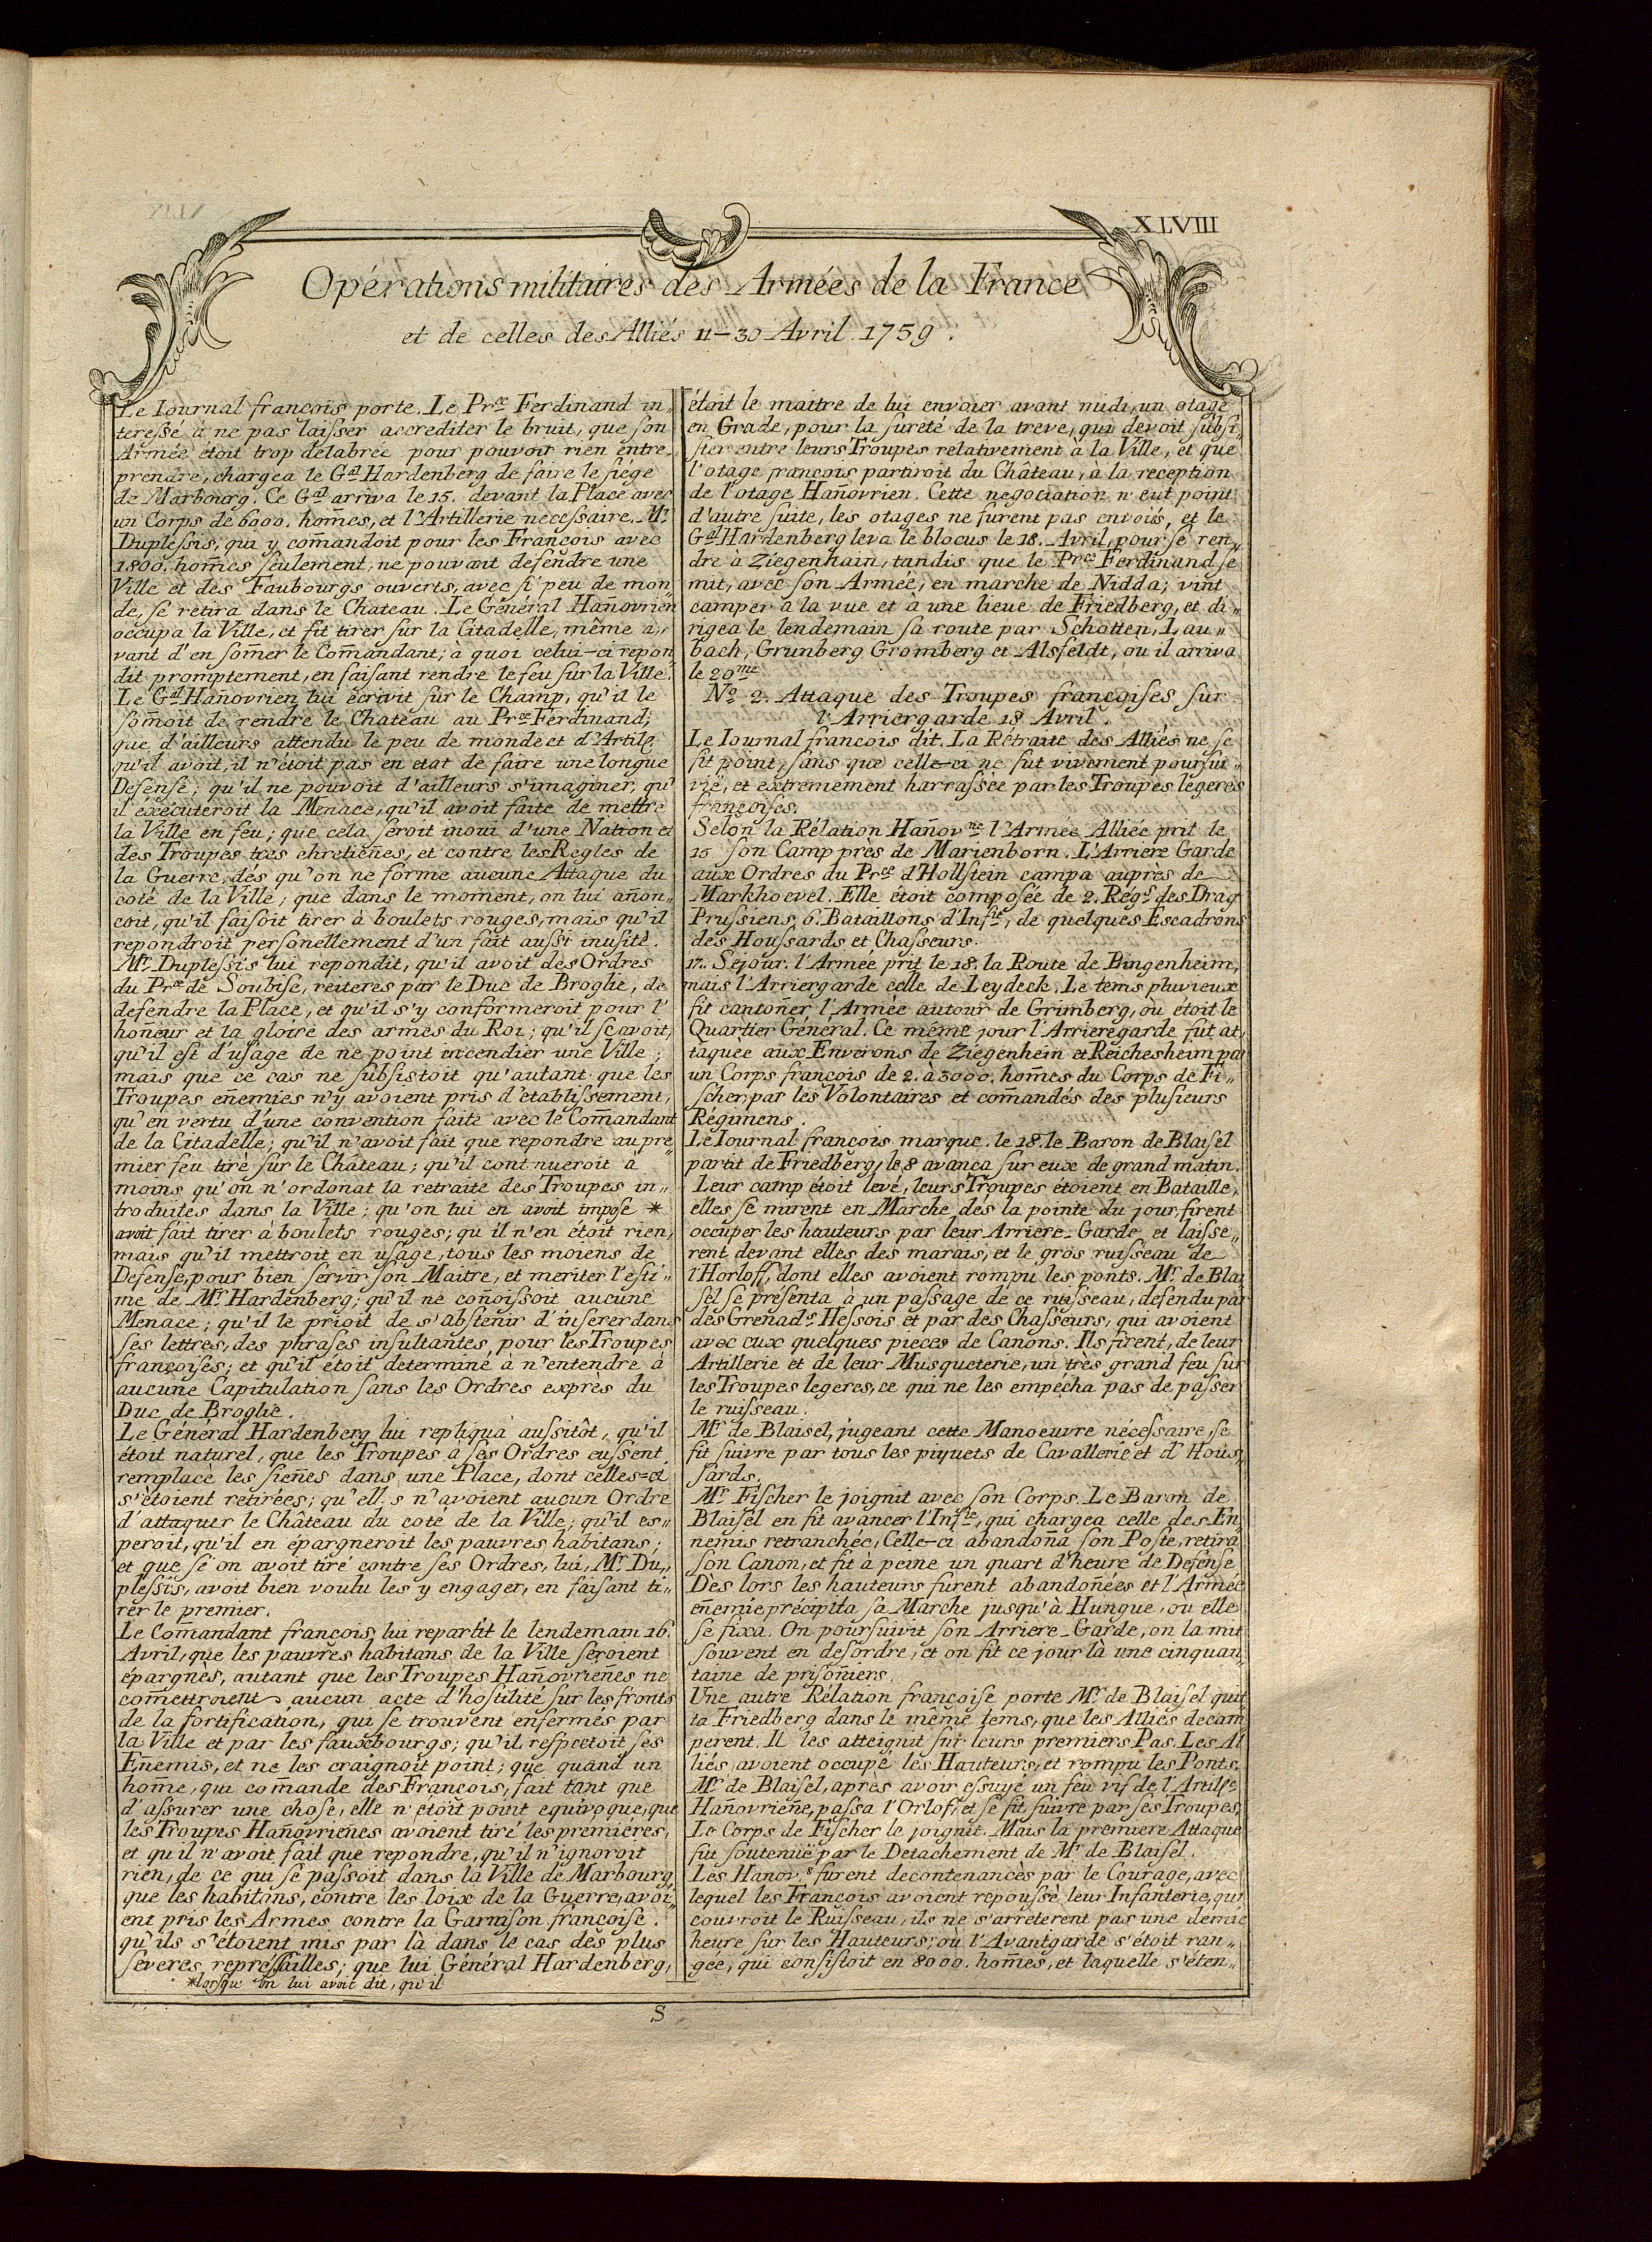 XLVIII
Opérations militaires des Armées de la France
et de celles des Alliés 11–30 Avril 1759.
Le Iournal françois porte. Le Prce Ferdinand in„
teressé à ne pas laisser accrediter le bruit, que son
Armée étoit trop délabrée pour pouvoir rien entre„
prendre, chargea le Gal Hardenberg de faire le siége
de Marbourg. Ce Gal arriva le 15. devant la Place avec
un Corps de 6000. hom̄es, et l'Artillerie necessaire. Mr.
Duplessis, qui y com̄andoit pour les François avec
1800. hom̄es seulement, ne pouvant défendre une
Ville et des Faubourgs ouverts, avec si peu de mon„
de, se retira dans le Chateau. Le Général Han̄ovrien
occupa la Ville, et fit tirer sur la Citadelle, même a„
vant d'en som̄er le Com̄andant; à quoi celui-ci repon„
dit promptement, en faisant rendre le feu sur la Ville.
Le Gal Han̄ovrien lui écrivit sur le Champ, qu'il le
som̄oit de rendre le Chateau au Prce Ferdinand;
que d'ailleurs attendu le peu de monde et d'Artile
qu'il avoit, il n'étoit pas en etat de faire une longue
Defense; qu'il ne pouvoit d'ailleurs s'imaginer, qu'
il éxécuteroit la Menace, qu'il avoit faite de mettre
la Ville en feu; que cela seroit inoui d'une Nation et
des Troupes tres chretien̄es, et contre les Regles de
la Guerre, dès qu'on ne forme aucune Attaque du
coté de la Ville; que dans le moment, on lui an̄on„
coit, qu'il faisoit tirer à boulets rouges, mais qu'il
repondroit personellement d'un fait aussi inusité.
Mr. Duplessis lui repondit, qu'il avoit des Ordres
du Prce de Soubise, reiteres par le Duc de Broglie, de
defendre la Place, et qu'il s'y conformeroit pour l'
hon̄eur et la gloire des armes du Roi; qu'il sçavoit,
qu'il est d'usage de ne point incendier une Ville;
mais que ce cas ne subsistoit qu'autant que les
Troupes en̄emies n'y avoient pris d'etablissement,
qu'en vertu d'une convention faite avec le Com̄andant
de la Citadelle; qu'il n'avoit fait que repondre au pre„
mier feu tiré sur le Château; qu'il cont nueroit à
moins qu'on n'ordonat la retraite des Troupes in„
troduites dans la Ville; qu'on lui en avoit impose *
avoit fait tirer à boulets rouges; qu'il n'en étoit rien,
mais qu'il mettroit en usage, tous les moiens de
Defense, pour bien servir son Maitre, et meriter l'esti„
me de Mr. Hardenberg; qu'il ne con̄oissoit aucune
Menace; qu'il le prioit de s'abstenir d'inserer dans
ses lettres, des phrases insultantes, pour les Troupes
françoises; et qu'il étoit determiné à n'entendre à
aucune Capitulation sans les Ordres exprès du
Duc de Broglie.
Le Général Hardenberg lui repliqua aussitôt, qu'il
étoit naturel, que les Troupes à ses Ordres eussent
remplacé les sien̄es dans une Place, dont celles=ci
s'étoient retirées; qu'ell s n'avoient aucun Ordre
d'attaquer le Château du coté de la Ville; qu'il es„
peroit, qu'il en épargneroit les pauvres habitans;
et que si on avoit tiré contre ses Ordres, lui, Mr. Du„
plessis, avoit bien voulu les y engager, en faisant ti„
rer le premier.
Le Com̄andant françois lui repartit le lendemain 16.
Avril, que les pauvres habitans de la Ville seroient
épargnés, autant que les Troupes Han̄ovrien̄es ne
com̄ettroient aucun acte d'hostilité sur les fronts
de la fortification, qui se trouvent enfermés par
la Ville et par les fauxbourgs; qu'il respectoit ses
En̄emis, et ne les craignoit point; que quand un
hom̄e, qui com̄ande des François, fait tant que
d'assurer une chose, elle n'étoit point equivoque, que
les Troupes Han̄ovrien̄es avoient tiré les premieres,
et qu'il n'avoit fait que repondre, qu'il n'ignoroit
rien, de ce qui se passoit dans la Ville de Marbourg,
que les habitans, contre les loix de la Guerre, avoi„
ent pris les Armes contre la Garnison françoise.
qu'ils s'étoient mis par là dans le cas des plus
severes repressailles; que lui Général Hardenberg,
*lorsqu'on lui avoit dit, qu'il
étoit le maitre de lui envoier avant midi, un otage
en Grade, pour la sureté de la treve, qui devoit subsi„
ster entre leurs Troupes relativement à la Ville, et que
l'otage françois partiroit du Château, à la reception
de l'otage Han̄ovrien. Cette negociation n'eut point
d'autre suite, les otages ne furent pas envoiés, et le
Gal Hardenberg leva le blocus le 18. Avril, pour se ren„
dre à Ziegenhain, tandis que le Prce Ferdinand se
mit, avec son Armée, en marche de Nidda; vint
camper à la vue et à une lieue de Friedberg, et di„
rigea le lendemain sa route par Schotten, Lau„
bach, Grunberg Gromberg et Alsfeldt, ou il arriva
le 20me
No. 2. Attaque des Troupes françoises sur
l'Arriergarde 18 Avril.
Le Iournal françois dit. La Rétraite des Alliés ne se
fit point, sans que celle-ci ne fut vivement poursui„
vie, et extremement harrassée par les Troupes légeres
françoises.
Selon la Rélation Han̄ovne l'Armée Alliée prit le
15 son Camp près de Marienborn. L'Arriere Garde
aux Ordres du Prce d'Hollstein campa auprès de
Markhoevel. Elle étoit composée de 2. Régs des Drag
Prussiens, 6. Bataillons d'Infie, de quelques Escadrons
des Houssards et Chasseurs.
17. Sejour. l'Armée prit le 18. la Route de Bingenheim,
mais l'Arriergarde celle de Leydeck. Le tems pluvieux
fit canton̄er l'Armée autour de Grimberg, où étoit le
Quartier Général. Ce même jour l'Arrieregarde fut at„
taquée aux Environs de Ziegenhein et Reichesheim par
un Corps françois de 2. à 3000. hom̄es du Corps de Fi„
scher, par les Volontaires et com̄andés des plusieurs
Régimens.
Le Iournal françois marque. le 18. le Baron de Blaisel
partit de Friedberg, le 8 avança sur eux de grand matin.
Leur camp étoit levé, leurs Troupes étoient en Bataille,
elles se mirent en Marche dès la pointe du jour, firent
occuper les hauteurs par leur Arriere-Garde et laisse„
rent devant elles des marais, et le gros ruisseau de
l'Horloff, dont elles avoient rompu les ponts. Mr. de Blai
sel se présenta à un passage de ce ruisseau, defendu par
des Grenads Hessois et par des Chasseurs, qui avoient
avec eux quelques pieces de Canons. Ils firent, de leur
Artillerie et de leur Musqueterie, un très grand feu sur
les Troupes legeres, ce qui ne les empécha pas de passer
le ruisseau.
Mr. de Blaisel, jugeant cette Manoeuvre nécessaire, se
fit suivre par tous les piquets de Cavallerie et d'Hous„
sards.
Mr. Fischer le joignit avec son Corps. Le Baron de
Blaisel en fit avancer l'Infie, qui chargea celle des En„
nemis retranchée, Celle-ci abandon̄a son Poste, retira
son Canon, et fit à peine un quart d'heure de Defense
Dès lors les hauteurs furent abandon̄ées et l'Armée
en̄emie précipita sa Marche jusqu'à Hungue, où elle
se fixa. On poursuivit son Arriere-Garde, on la mit
souvent en desordre, et on fit ce jour là une cinquan„
taine de prison̄iers.
Une autre Rélation françoise porte Mr. de Blaisel quit
ta Friedberg dans le même tems, que les Alliés decam
perent. Il les atteignit sur leurs premiers Pas. Les Al
liés avoient occupé les Hauteurs, et rompu les Ponts.
Mr. de Blaisel, après avoir essuyé un feu vif de l'Artille
Han̄ovrien̄e, passa l'Orloff, et se fit suivre par ses Troupes,
Le Corps de Fischer le joignit. Mais la premiere Attaque
fut soutenuë par le Detachement de Mr. de Blaisel.
Les Hanovs furent decontenancès par le Courage, avec
lequel les François avoient repoussé leur Infanterie, qui
couvroit le Ruisseau, ils ne s'arreterent pas une demie
heure sur les Hauteurs; où l'Avantgarde s'étoit ran„
gée, qui consistoit en 8000. hom̄es, et laquelle s'éten„
S